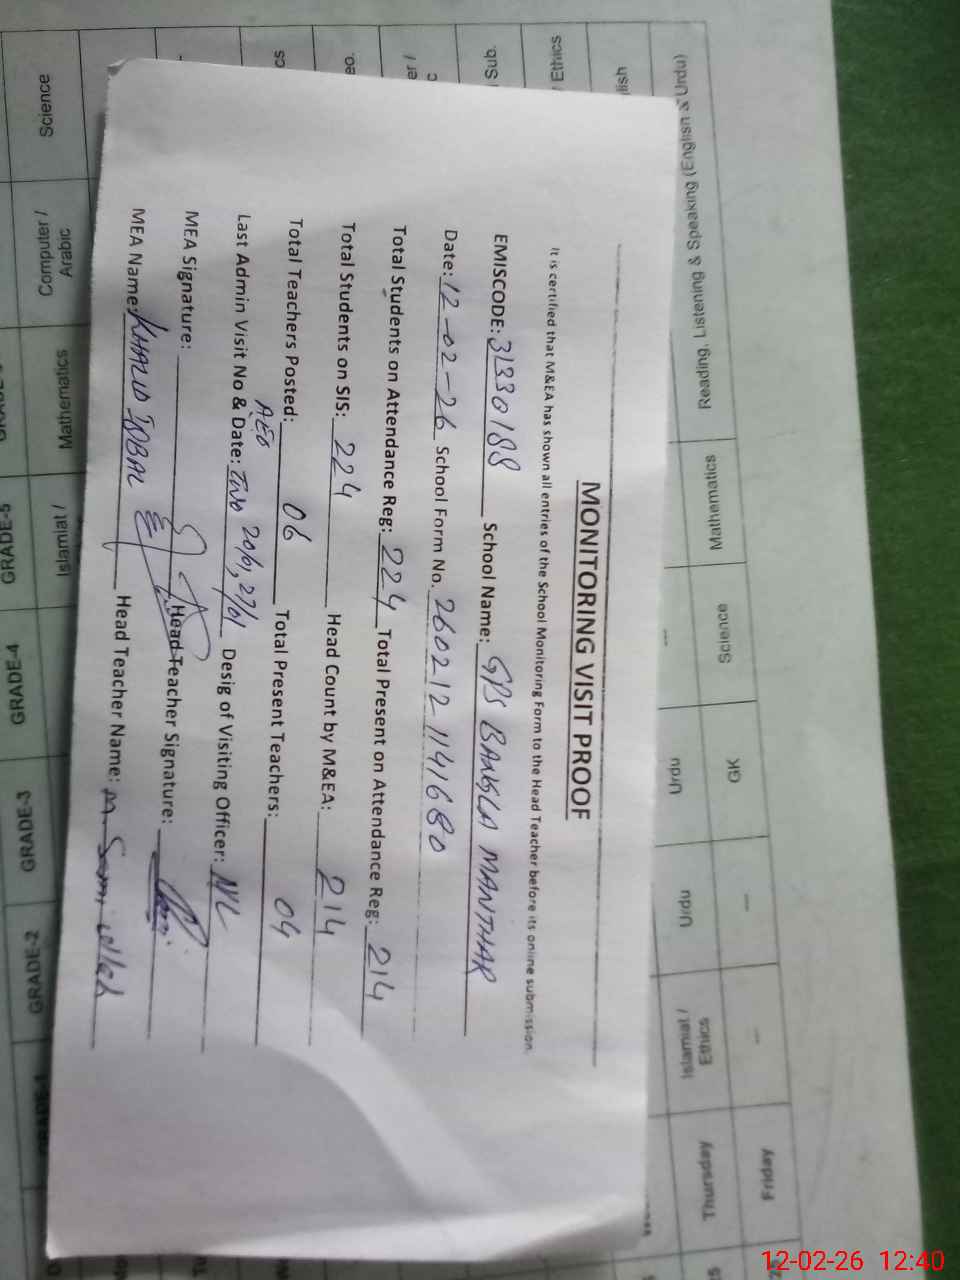 MONITORING VISIT PROOF
It is certified that M&EA has shown all entries of the School Monitoring Form to the Head Teacher before its online submission.
EMISCODE: 31330188 School Name: GPS BANGLA MANTHAR
Date: 12-02-26 School Form No. 2602121141680
Total Students on Attendance Reg: 224 Total Present on Attendance Reg: 214
Total Students on SIS: 224 Head Count by M&EA: 214
Total Teachers Posted: 06 Total Present Teachers: 04
AEO
Last Admin Visit No & Date: Two 20/1, 27/01 Desig of Visiting Officer: NIL
MEA Signature: Head Teacher Signature:
MEA Name: KHALID IQBAL Head Teacher Name: M. Sami ullah
Reading, Listening & Speaking (English & Urdu)
Mathematics
Science
GK
---
--
Friday
---
Urdu
Urdu
Islamiat /
Ethics
Thursday
Science
Computer /
Arabic
Mathematics
Islamiat /
GRADE-5
GRADE-4
GRADE-3
GRADE-2
GRADE-1
Ethics
Sub.
12-02-26 12:40